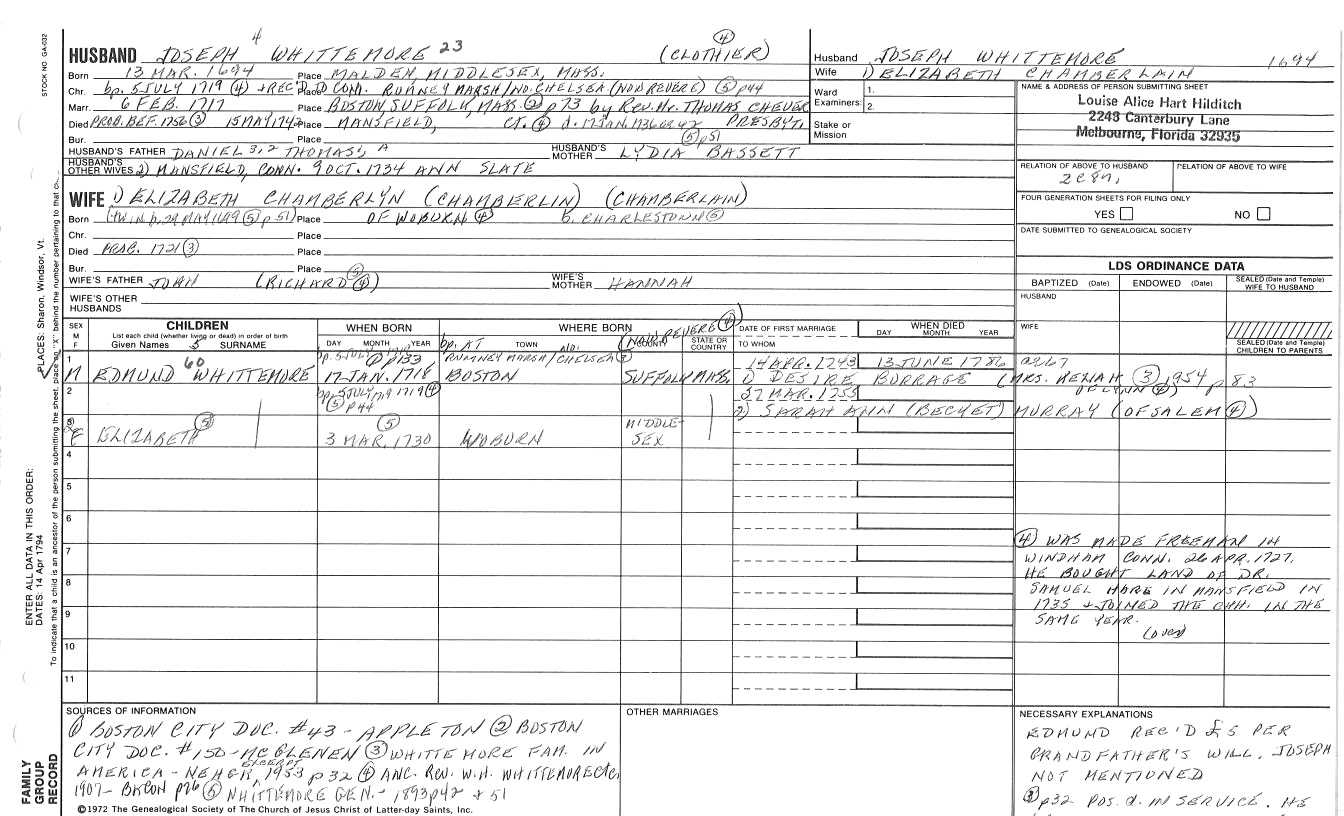 STOCK NO. GA-032
4 23 (4)
HUSBAND JOSEPH WHITTEMORE (CLOTHIER)
Born 13 MAR. 1694 Place MALDEN, MIDDLESEX, MASS.
Chr. bp. 5 JULY 1719 (4) + REC'D Place CON. RUMNEY MARSH/NO. CHELSEA (NOW REVERE) (5) p44
Marr. 6 FEB. 1717 Place BOSTON, SUFFOLK, MASS. (2) p73 by Rev. Mr. THOMAS CHEVER
Died PROB. BEF. 1756 (3) 15 MAY 1742 Place MANSFIELD, CT. (4) d. 17 JAN. 1736 PRESBYT.
Bur. Place (5) p51
HUSBAND'S FATHER DANIEL 3,2 THOMAS 1, A HUSBAND'S MOTHER LYDIA BASSETT
HUSBAND'S OTHER WIVES 2) MANSFIELD, CONN. 9 OCT. 1734 ANN SLATE
Husband JOSEPH WHITTEMORE 1694
Wife 1) ELIZABETH CHAMBERLAIN
Ward 1.
Examiners: 2.
Stake or
Mission
NAME & ADDRESS OF PERSON SUBMITTING SHEET
Louise Alice Hart Hilditch
2248 Canterbury Lane
Melbourne, Florida 32935
RELATION OF ABOVE TO HUSBAND RELATION OF ABOVE TO WIFE
FOUR GENERATION SHEETS FOR FILING ONLY
YES NO
DATE SUBMITTED TO GENEALOGICAL SOCIETY
WIFE 1) ELIZABETH CHAMBERLYN (CHAMBERLIN) (CHAMBERLAIN)
Born (5) p51) Place OF WOBURN (4) b. CHARLESTOWN (5)
Chr. Place
Died PROB. 1721 (3) Place
Bur. Place (5)
WIFE'S FATHER JOHN (RICHARD (4)) WIFE'S MOTHER HANNAH
WIFE'S OTHER
HUSBANDS
LDS ORDINANCE DATA
BAPTIZED (Date) ENDOWED (Date) SEALED (Date and Temple) WIFE TO HUSBAND
HUSBAND
WIFE
SEALED (Date and Temple) CHILDREN TO PARENTS
SEX M F
CHILDREN
List each child (whether living or dead) in order of birth
Given Names 5 SURNAME
WHEN BORN
DAY MONTH YEAR
WHERE BORN
bp. AT TOWN NO. (NOW REVERE (4)) COUNTY STATE OR COUNTRY
DATE OF FIRST MARRIAGE
TO WHOM
WHEN DIED
DAY MONTH YEAR
1 60 bp. 5 JULY (1) p133 RUMNEY MARSH/CHELSEA 14 APR. 1743 13 JUNE 1786
M EDMUND WHITTEMORE 17 JAN. 1718 BOSTON SUFFOLK MASS. 1) DESIRE BURRAGE (MRS. (3) 1954 p 83
2 bp. 5 JULY 1719 (4) (5) p44 27 MAR. 1755 OF LYNN (4)
2) SARAH ANN (BECKET) MURRAY (OF SALEM (4))
3 F ELIZABETH (5) (5) 3 MAR. 1730 WOBURN MIDDLE-
SEX
4
5
6
7
8
9
10
11
(4) WAS MADE FREEMAN IN
WINDHAM CONN. 26 APR. 1727.
HE BOUGHT LAND OF DR.
SAMUEL HARE IN MANSFIELD IN
1735 + JOINED THE CHH. IN THE
SAME YEAR.
(over)
SOURCES OF INFORMATION
(1) BOSTON CITY DOC. #43 - APPLETON (2) BOSTON
CITY DOC. #150 - McGLENEN (3) WHITTEMORE FAM. IN
AMERICA - NEHGR, EXCERPT 1953 p32 (4) ANC. REV. W.H. WHITTEMORE etc.
1907 - BACON p76 (5) WHITTEMORE GEN. - 1893 p42 + 51
©1972 The Genealogical Society of The Church of Jesus Christ of Latter-day Saints, Inc.
OTHER MARRIAGES
NECESSARY EXPLANATIONS
EDMUND REC'D £5 PER
GRANDFATHER'S WILL. JOSEPH
NOT MENTIONED
(3) p32 POS. d. IN SERVICE. HE
ENTER ALL DATA IN THIS ORDER:
DATES: 14 Apr 1794
PLACES: Sharon, Windsor, Vt.
To indicate that a child is an ancestor of the person submitting the sheet, place an "X" behind the number pertaining to that
FAMILY
GROUP
RECORD